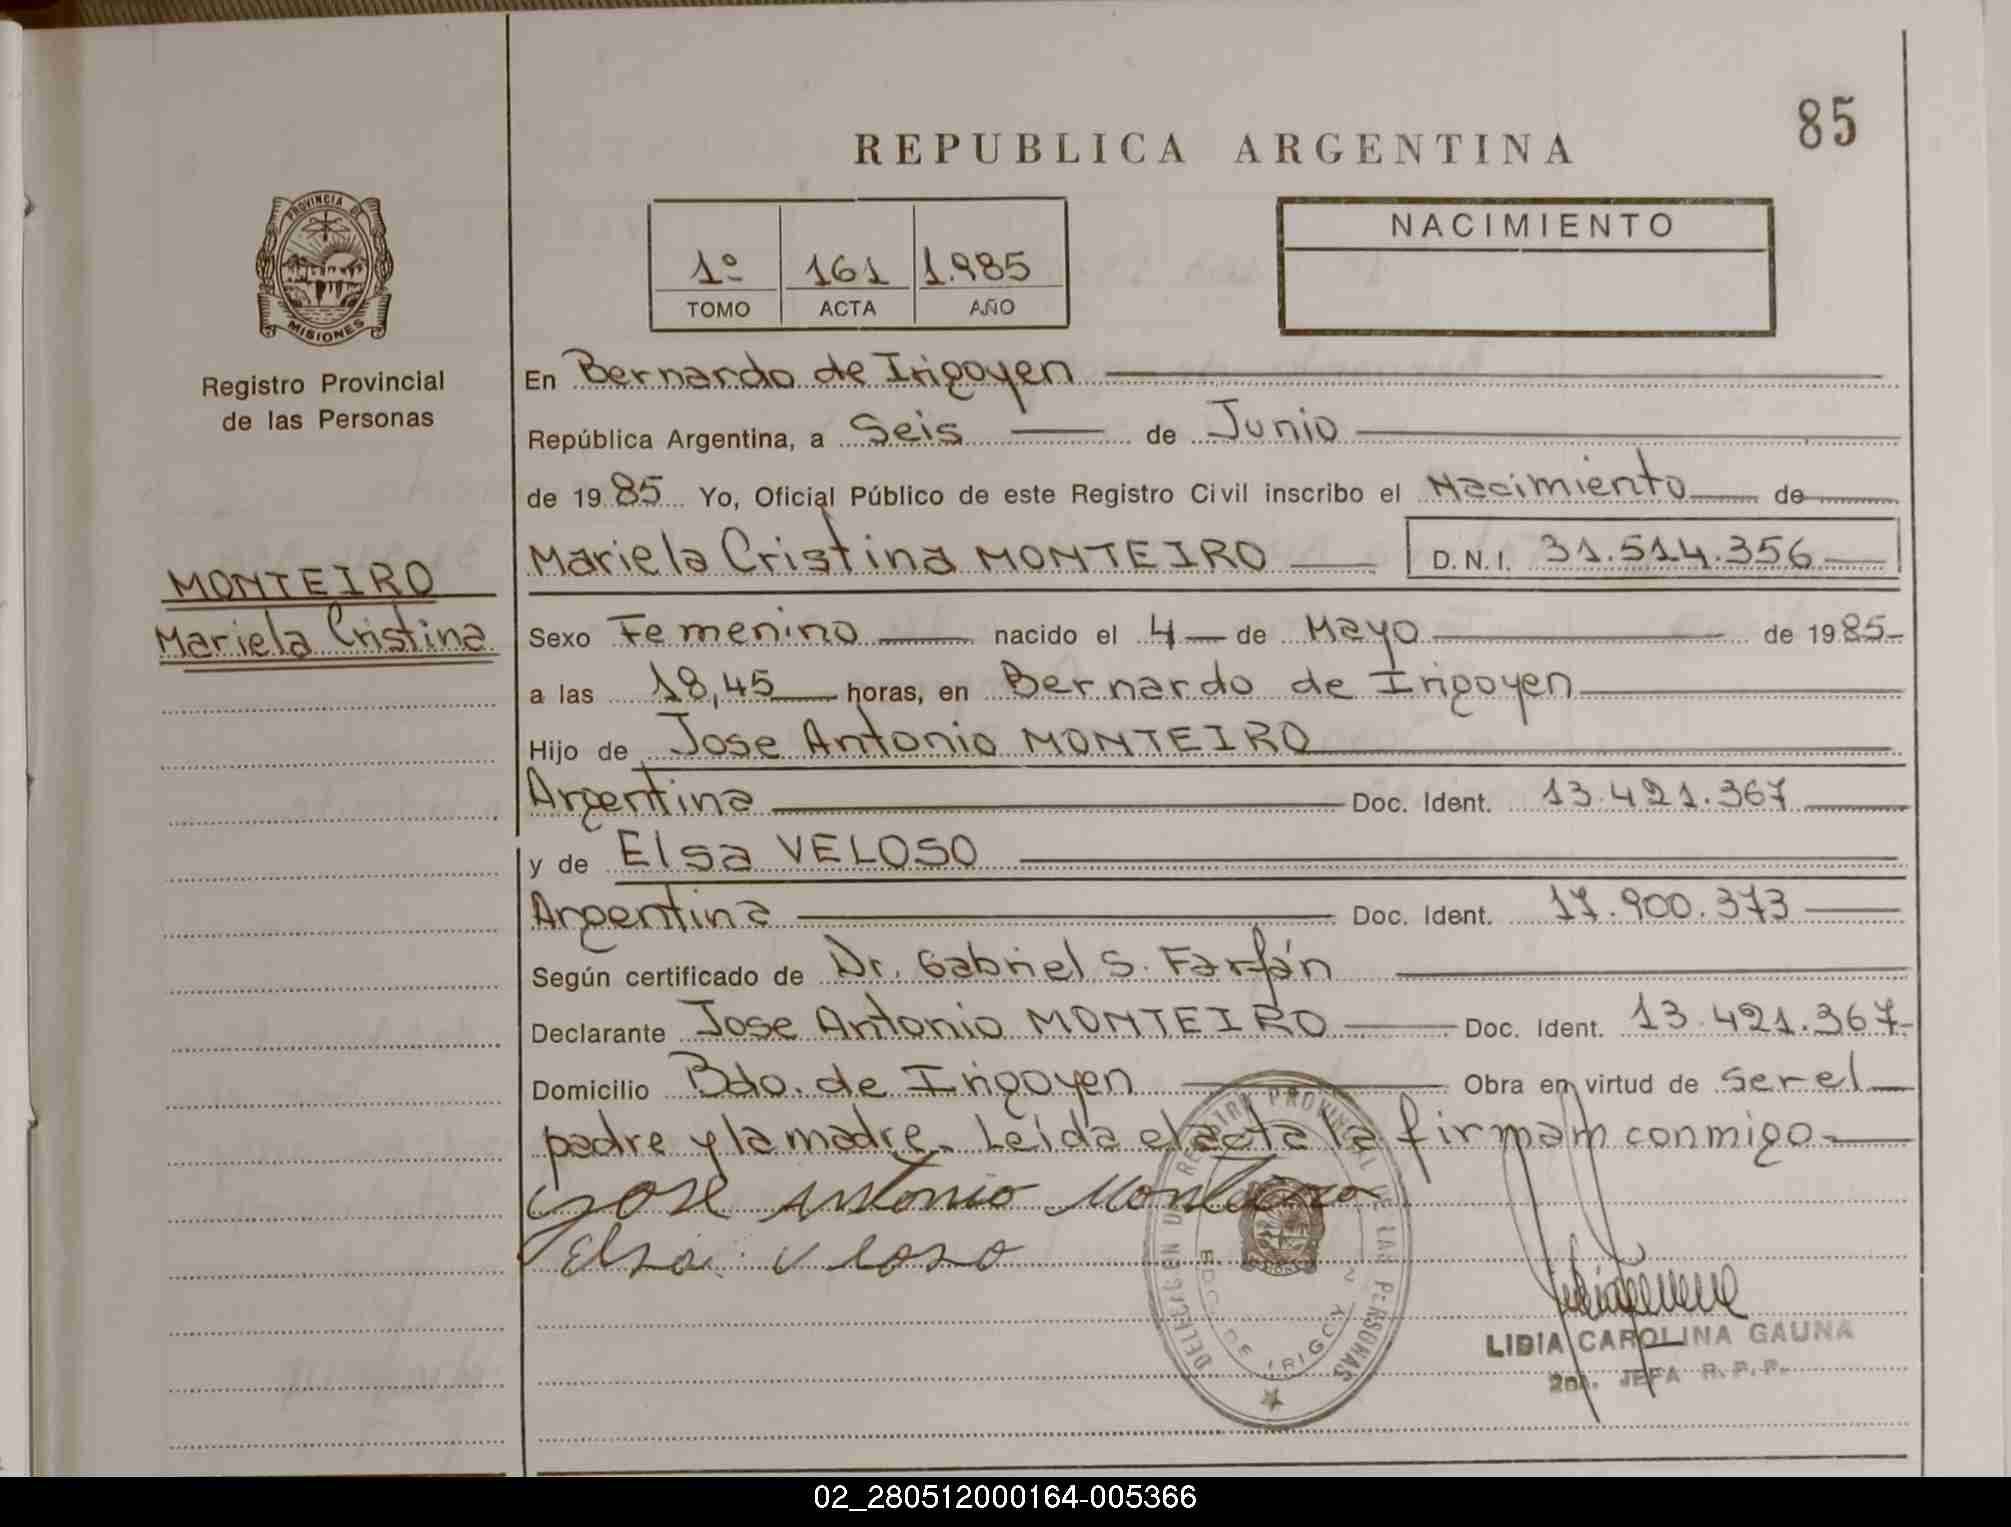 85
REPUBLICA ARGENTINA
PROVINCIA DE
MISIONES
Registro Provincial
de las Personas
1º 161 1.985
TOMO ACTA AÑO
NACIMIENTO
En Bernardo de Irigoyen
República Argentina, a Seis de Junio
de 1985 Yo, Oficial Público de este Registro Civil inscribo el Nacimiento de
Mariela Cristina MONTEIRO D.N.I. 31.514.356
MONTEIRO
Mariela Cristina
Sexo Femenino nacido el 4 de Mayo de 1985
a las 18,45 horas, en Bernardo de Irigoyen
Hijo de Jose Antonio MONTEIRO
Argentina Doc. Ident. 13.421.367
y de Elsa VELOSO
Argentina Doc. Ident. 17.900.373
Según certificado de Dr. Gabriel S. Farfán
Declarante Jose Antonio MONTEIRO Doc. Ident. 13.421.367
Domicilio Bdo. de Irigoyen Obra en virtud de ser el
padre y la madre. Leída el acta la firmam conmigo
Jose Antonio Monteiro
Elsa
DELEGACION REGISTRO PROVINCIAL DE LAS PERSONAS
BDO. DE IRIGOYEN
LIDIA CAROLINA GAUNA
2da. JEFA R.P.P.
02_280512000164-005366